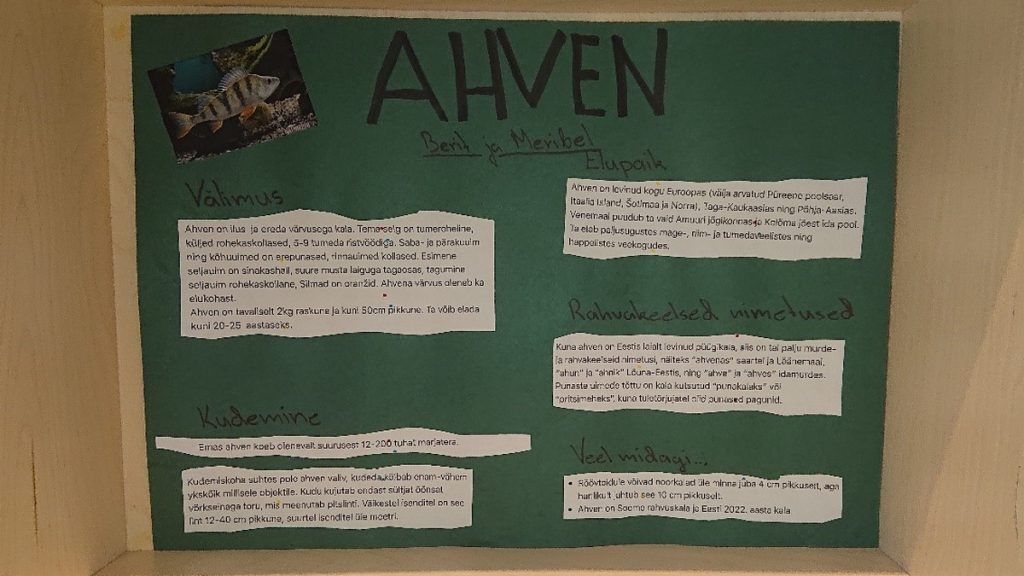 AHVEN
Berit ja Meribel
Välimus
Ahven on ilus ja ereda värvusega kala. Tema selg on tumeroheline,
küljed rohekaskollased, 5-9 tumeda ristvöödiga. Saba- ja pärakuuim
ning kõhuuimed on erepunased, rinnauimed kollased. Esimene
seljauim on sinakashall, suure musta laiguga tagaosas, tagumine
seljauim rohekaskollane, Silmad on oranžid. Ahvena värvus oleneb ka
elukohast.
Ahven on tavaliselt 2kg raskune ja kuni 50cm pikkune. Ta võib elada
kuni 20-25 aastaseks.
Kudemine
Emas ahven koeb olenevalt suurusest 12-200 tuhat marjatera.
Kudemiskoha suhtes pole ahven valiv, kudeda kõlbab enam-vähem
ükskõik millisele objektile. Kudu kujutab endast sültjat õõnsat
võrkseinaga toru, mis meenutab pitslinti. Väikestel isenditel on see
lint 12-40 cm pikkune, suurtel isenditel üle meetri.
Elupaik
Ahven on levinud kogu Euroopas (välja arvatud Püreene poolsaar,
Itaalia Island, Šotimaa ja Norra), Taga-Kaukaasias ning Põhja-Aasias.
Venemaal puudub ta vaid Amuuri jõgikonnas ja Kolõma jõest ida pool.
Ta elab paljusugustes mage-, riim- ja tumedaveelistes ning
happelistes veekogudes.
Rahvakeelsed nimetused
Kuna ahven on Eestis laialt levinud püügikala, siis on tal palju murde-
ja rahvakeelseid nimetusi, näiteks "ahvenas" saartel ja Läänemaal,
"ahun" ja "ahnik" Lõuna-Eestis, ning "ahve" ja "ahves" idamurdes.
Punaste uimede tõttu on kala kutsutud "punakalaks" või
"pritsimeheks", kuna tuletõrjujatel olid punased pagunid.
Veel midagi...
• Röövtoidule võivad noorkalad üle minna juba 4 cm pikkuselt, aga
harilikult juhtub see 10 cm pikkuselt.
• Ahven on Soome rahvuskala ja Eesti 2022. aasta kala